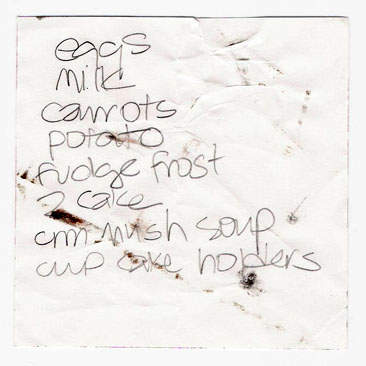 eggs
milk
carrots
potato
fudge frost
2 cake
crm mush soup
cup cake holders